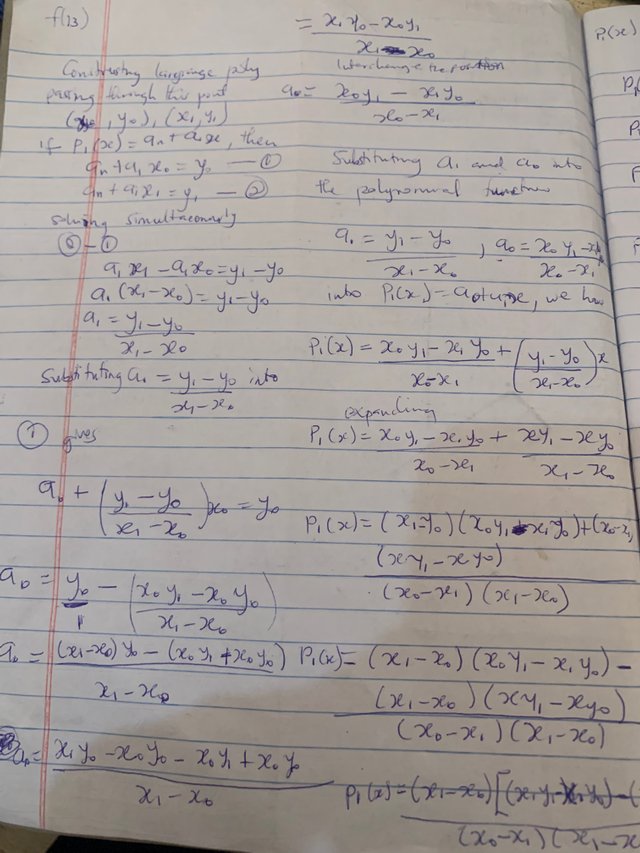 f(13)
Constructing langrange poly
passing through this point
(x0, y0), (x1, y1)
if P1(x) = an + a1x, then
an + a1 x0 = y0 — ①
an + a1 x1 = y1 — ②
solving simultaneously
② - ①
a1 x1 - a1 x0 = y1 - y0
a1 (x1 - x0) = y1 - y0
a1 = y1 - y0
x1 - x0
Substituting a1 = y1 - y0 into
x1 - x0
① gives
a0 + (y1 - y0 / x1 - x0) x0 = y0
a0 = y0 - (x0 y1 - x0 y0 / x1 - x0)
1
a0 = (x1 - x0) y0 - (x0 y1 + x0 y0)
x1 - x0
a0 = x1 y0 - x0 y0 - x0 y1 + x0 y0
x1 - x0
= x1 y0 - x0 y1
x1 - x0
Interchange the position
a0 = x0 y1 - x1 y0
x0 - x1
Substituting a1 and a0 into
the polynomial function
a1 = y1 - y0 , a0 = x0 y1 - x1
x1 - x0 x0 - x1
into P1(x) = a0 + a1x, we have
P1(x) = x0 y1 - x1 y0 + (y1 - y0 / x1 - x0) x
x0 - x1
expanding
P1(x) = x0 y1 - x1 y0 + xy1 - xy0
x0 - x1 x1 - x0
P1(x) = (x1 - y0) (x0 y1 - x1 y0) + (x0 - x1)
(xy1 - xy0)
(x0 - x1) (x1 - x0)
P1(x) = (x1 - x0) (x0 y1 - x1 y0) -
(x1 - x0) (xy1 - xy0)
(x0 - x1) (x1 - x0)
P1(x) = (x1 - x0) [
(x0 - x1) (x1 - x
P1(x)
P1
P1